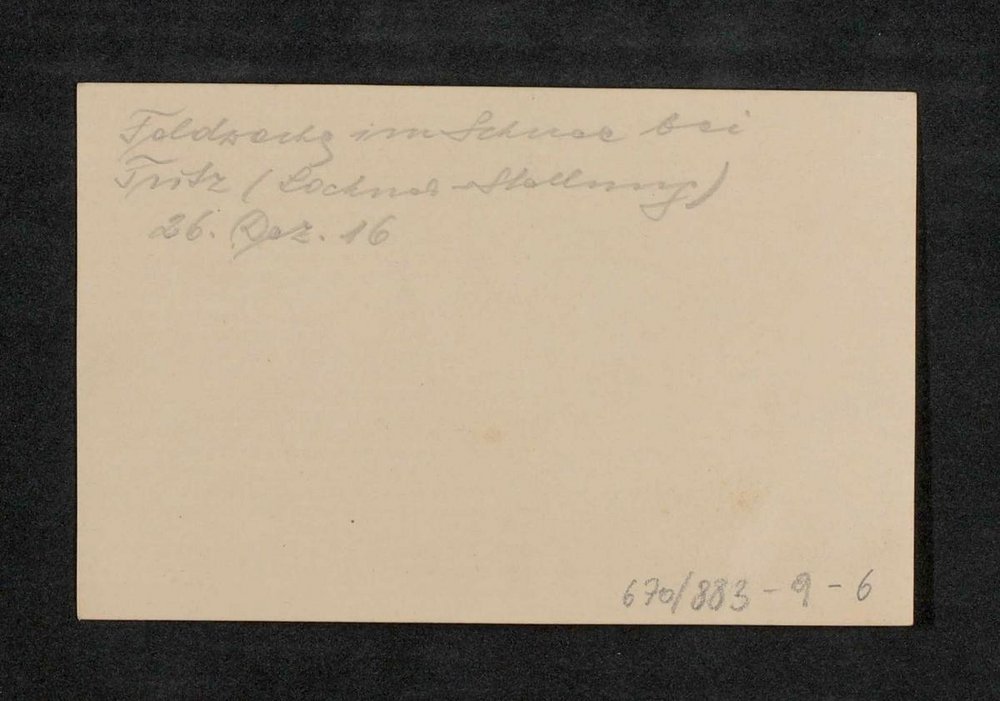 Feldwache im Schnee bei
Fritz (Lochner-Stellung)
26. Dez. 16
670/883-9-6